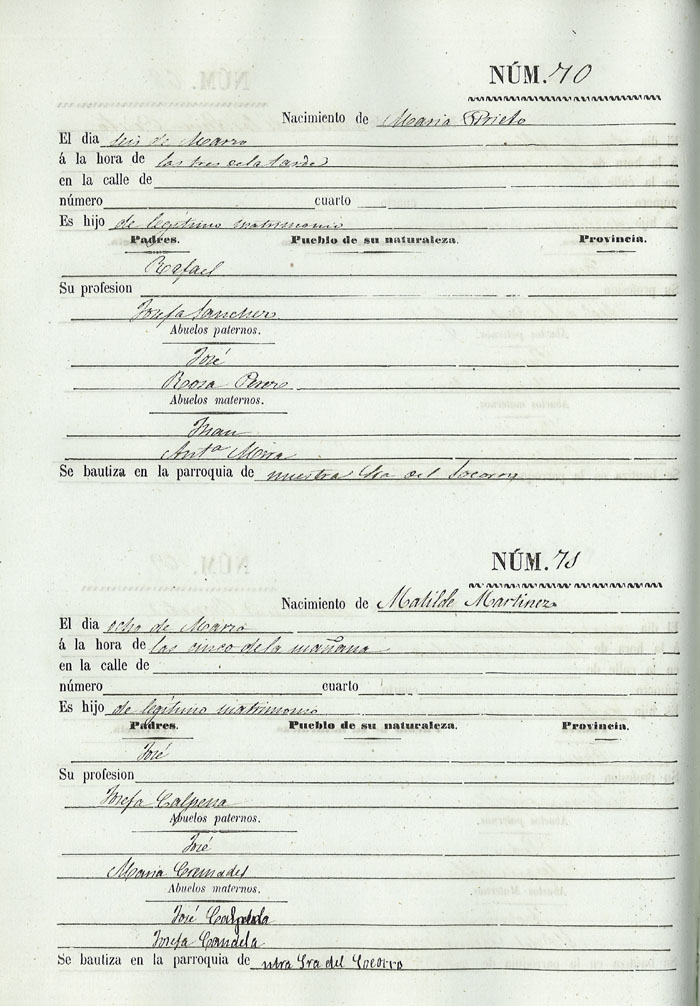 NÚM. 70
Nacimiento de Maria Prieto
El dia seis de Marzo
á la hora de las tres de la tarde
en la calle de
número cuarto
Es hijo de legitimo matrimonio
Padres. Pueblo de su naturaleza. Provincia.
Rafael
Su profesion
Josefa Sanchez
Abuelos paternos.
José
Rosa Perez
Abuelos maternos.
Juan
Antª Mira
Se bautiza en la parroquia de nuestra Sra del Socorro
NÚM. 71
Nacimiento de Matilde Martinez
El dia ocho de Marzo
á la hora de las cinco de la mañana
en la calle de
número cuarto
Es hijo de legitimo matrimonio
Padres. Pueblo de su naturaleza. Provincia.
José
Su profesion
Josefa Calpena
Abuelos paternos.
José
Maria Cremades
Abuelos maternos.
José
Josefa Candela
Se bautiza en la parroquia de ntra Sra del Socorro